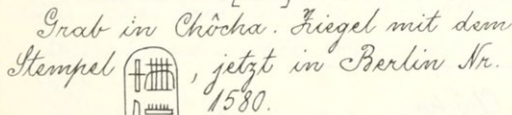 Grab in Chôcha. Ziegel mit dem
Stempel , jetzt in Berlin Nr.
1580.